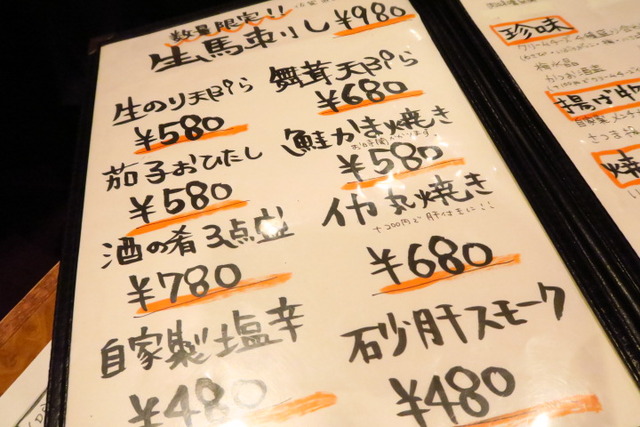 数量限定!!
生馬刺し ¥980
生のり天ぷら
¥580
茄子おひたし
¥580
酒の肴3点盛
¥780
自家製塩辛
¥480
舞茸天ぷら
¥680
鮭かま焼き
¥580
イカ丸焼き
+200円で肝付きに
¥680
石砂肝スモーク
¥480
珍味
揚げ物